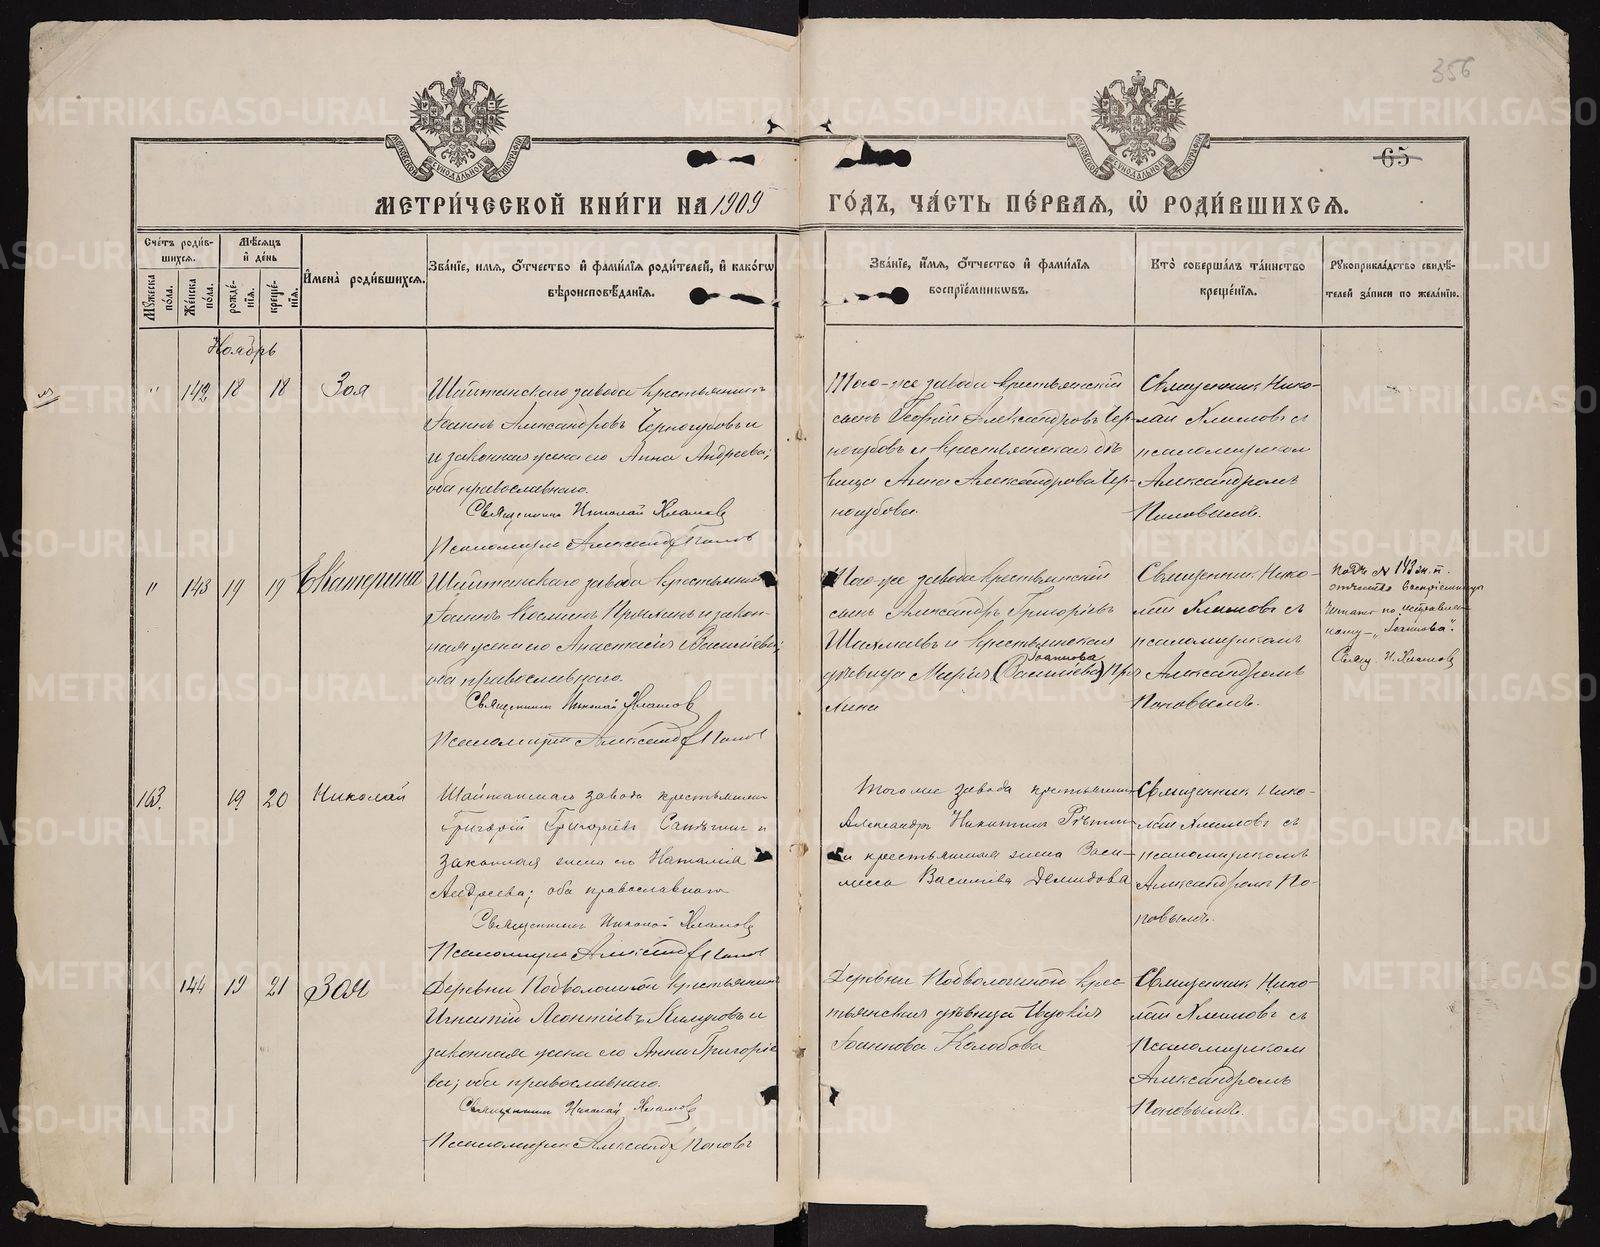 356
65
МОСКОВСКОЙ СѴНОДАЛЬНОЙ ТИПОГРАФІИ
МОСКОВСКОЙ СѴНОДАЛЬНОЙ ТИПОГРАФІИ
МЕТРИ́ЧЕСКОЙ КНИ́ГИ НА 1909 ГО́ДЪ, ЧА́СТЬ ПЕ́РВАЯ, Ѡ҆ РОДИ́ВШИХСЯ.
Сче́тъ роди́в-
шихся.
Му́жеска по́ла.
Же́нска по́ла.
Мѣ́сяцъ
и҆ де́нь
рожде́-
нія.
креще́-
нія.
И҆мена̀ роди́вшихся.
Зва́ніе, имя, ѻ҆́тчество и҆ фами́лія роди́телей, и҆ како́гѡ
вѣроисповѣ́данія.
Зва́ніе, и҆́мя, ѻ҆́тчество и҆ фами́лія
воспріе́мникѡвъ.
Кто̀ соверша́лъ та́инство
креще́нія.
Рꙋкоприкла́дство свидѣ́-
телей за́писи по жела́нію.
Ноябрь
" 142 18 18 Зоя
Шайтанскаго завода крестьянинъ
Іоаннъ Александровъ Черногубовъ и
и законная жена его Анна Андреева;
оба православнаго.
Священникъ Николай Хламовъ
Псаломщикъ Александръ Поповъ
Того-же завода крестьянскій
сынъ Георгій Александровъ Чер-
ногубовъ и крестьянская дѣ
вица Анна Александрова Чер-
ногубова.
Священникъ Нико-
лай Хламовъ съ
псаломщикомъ
Александромъ
Поповымъ.
" 143 19 19 Екатерина
Шайтанскаго завода крестьянинъ
Іоаннъ Косминъ Прялинъ и закон-
ная жена его Анастасія Васильева;
оба православнаго.
Священникъ Николай Хламовъ
Псаломщикъ Александръ Поповъ
Того-же завода крестьянскій
сынъ Александръ Григоріевъ
Шахмаевъ и крестьянская
Іоаннова
дѣвица Марія (Васильева) Пря
лина
Священникъ Нико-
лай Хламовъ съ
псаломщикомъ
Александромъ
Поповымъ.
Подъ № 143 ж. п.
отчество воспріемницы
читать по исправлен
ному - "Іоаннова".
Свящ. Н. Хламовъ
163. 19 20 Николай
Шайтанскаго завода крестьянинъ
Григорій Григорьевъ и
законная жена его Наталія
Андреева; оба православнаго
Священникъ Николай Хламовъ
Псаломщикъ Александръ Поповъ
Того же завода крестьянинъ
Александръ Никитинъ
и крестьянская жена Васи-
лисса Васильева Демидова
Священникъ Нико-
лай Хламовъ съ
псаломщикомъ
Александромъ По-
повымъ.
144 19 21 Зоя
Деревни Подволошной крестьянинъ
Игнатій Леонтіевъ и
законная жена его Анна Григоріе
ва; оба православнаго.
Священникъ Николай Хламовъ
Псаломщикъ Александръ Поповъ
Деревни Подволошной крес-
тьянская дѣвица Евдокія
Іоаннова Колобова
Священникъ Нико-
лай Хламовъ съ
Псаломщикомъ
Александромъ
Поповымъ.
METRIKI.GASO-URAL.RU